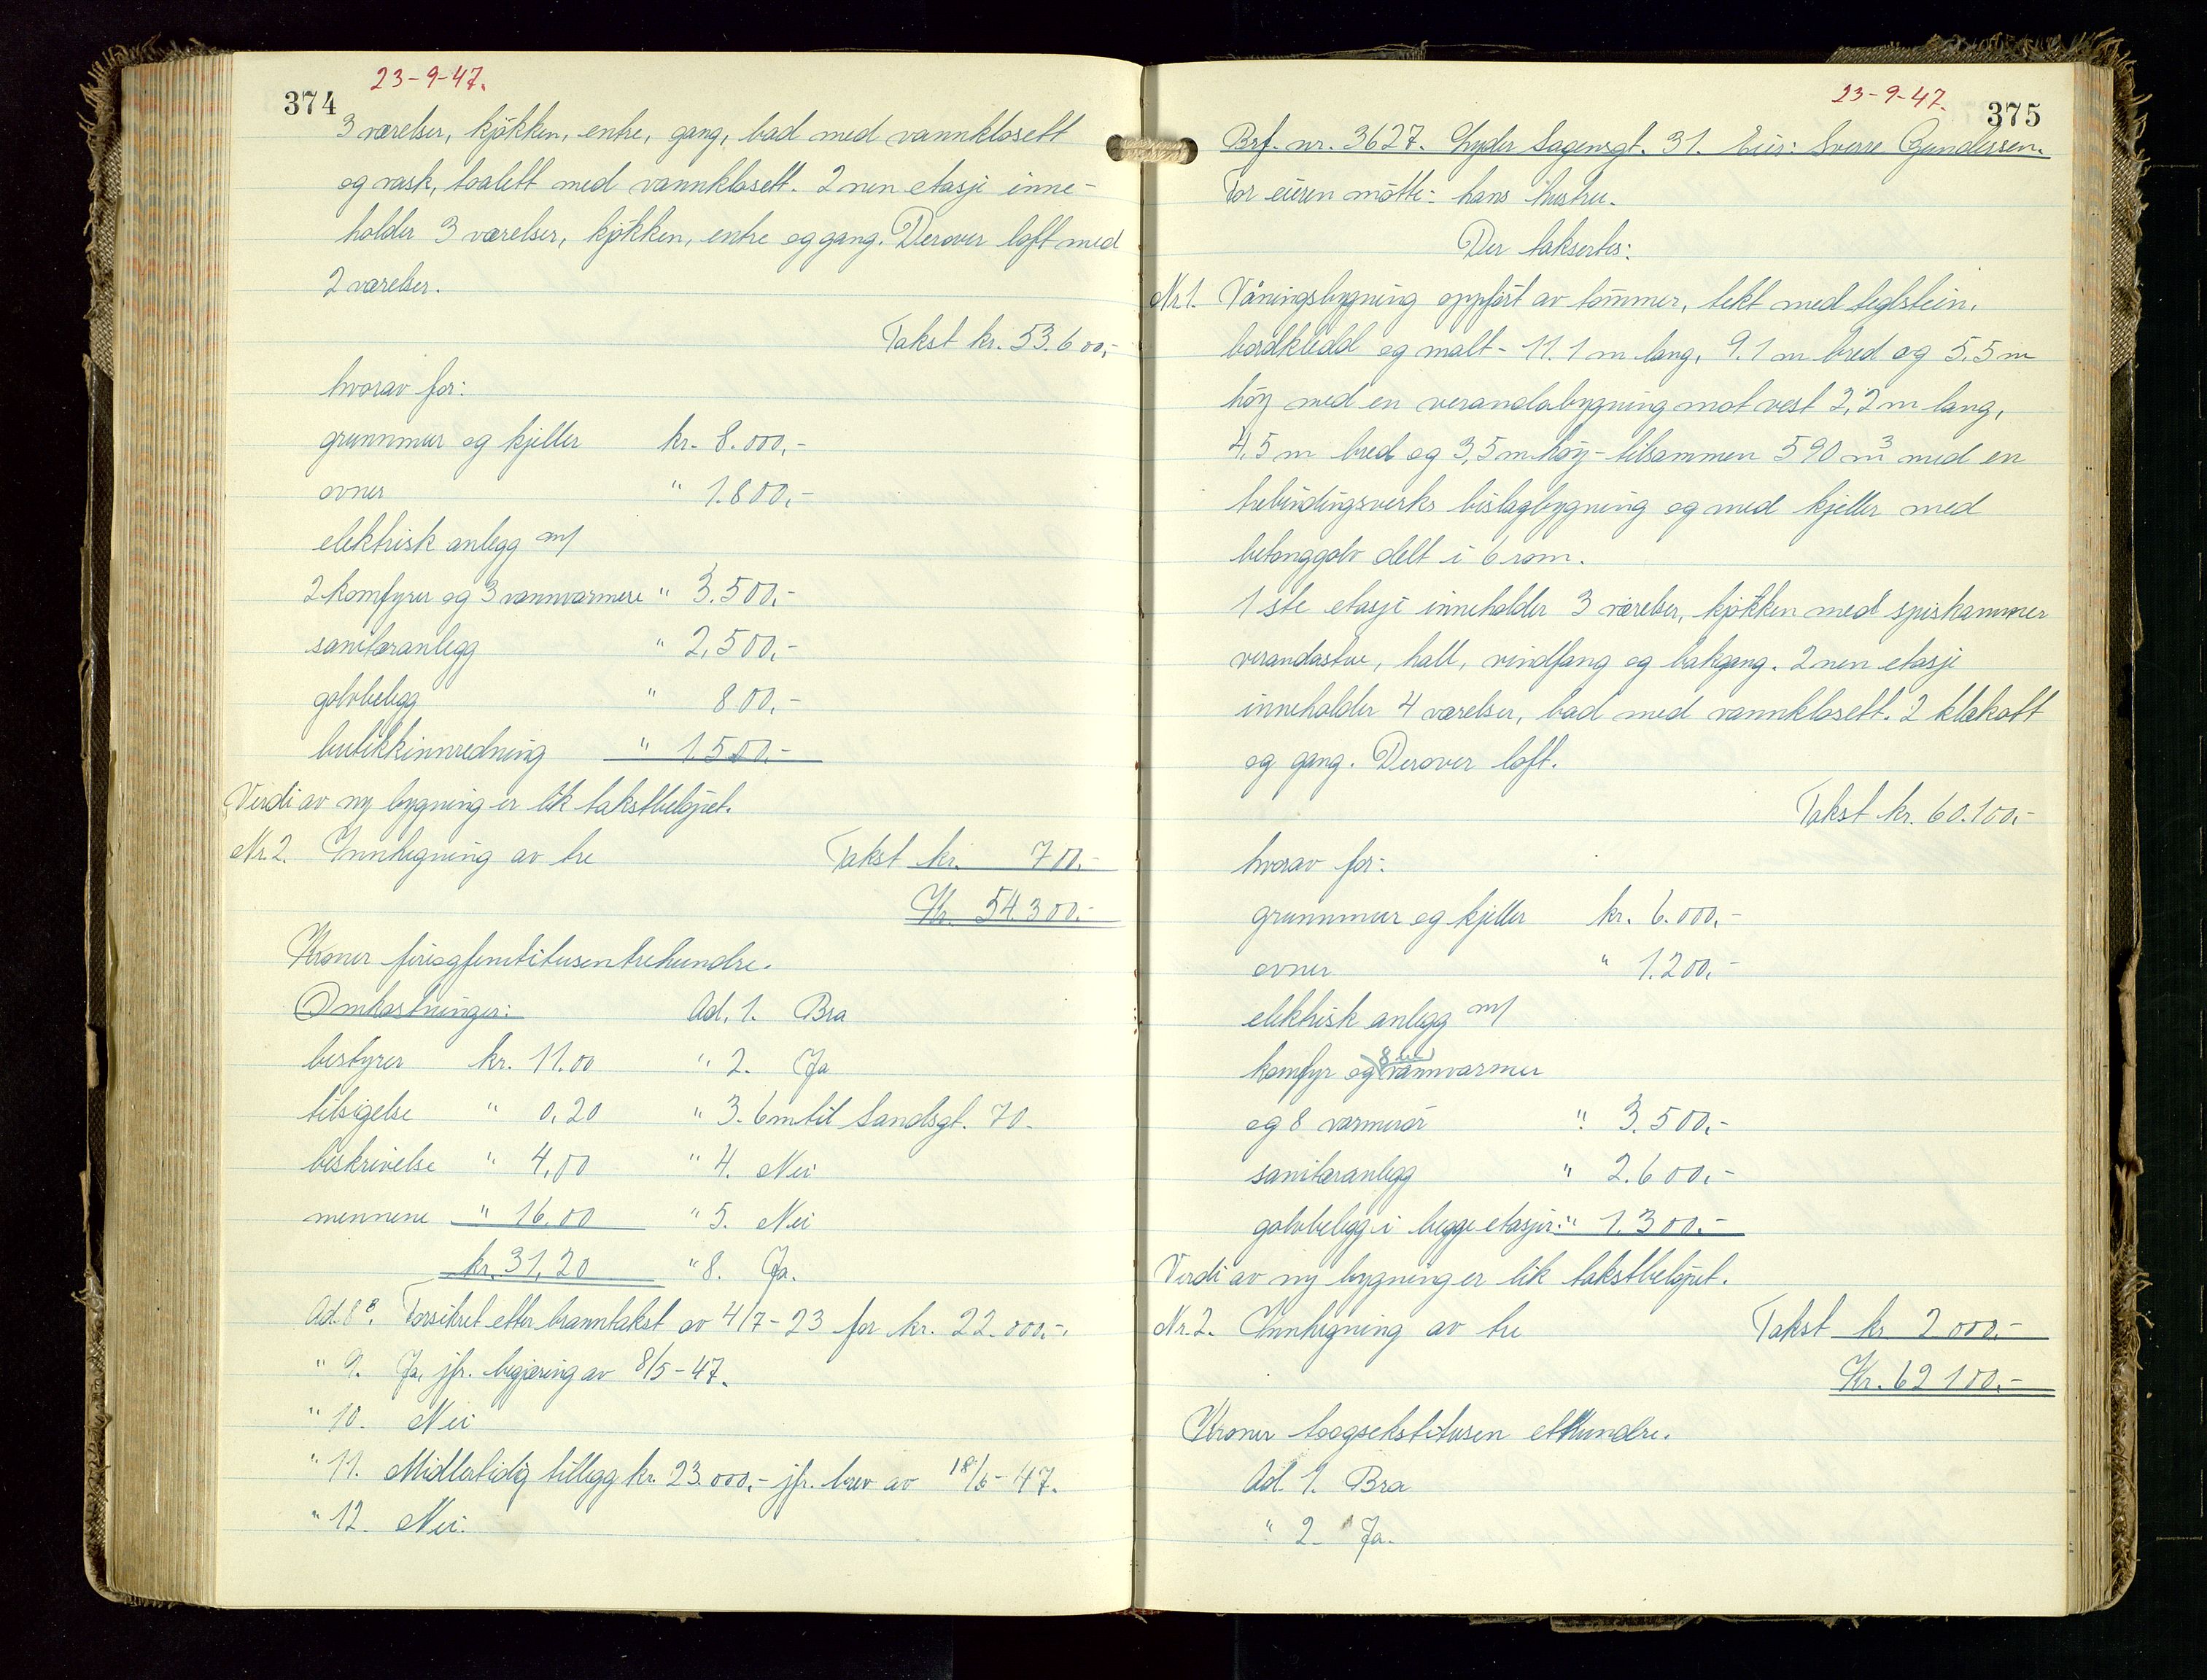 23-9-47.
374
3 værelser, kjøkken, entre, gang, bad med vannklosett
og vask, toalett med vannklosett. 2nen etasje inne-
holder 3 værelser, kjøkken, entre og gang. Derover loft med
2 værelser.
Takst kr. 53.600,-
hvorav for:
grunnmur og kjeller kr. 8.000,-
ovner " 1.800,-
elektrisk anlegg m/
2 komfyrer og 3 vannvarmere " 3.500,-
sanitæranlegg " 2,500,-
golvbelegg " 800,-
butikkinnredning " 1.500.-
Verdi av ny bygning er lik takstbeløpet.
Nr. 2. Innhegning av tre Takst kr. 700.-
Kr. 54.300.-
Kroner fireogfemtitusentrehundre.
Omkostninger: Ad. 1. Bra
bestyrer kr. 11.00 " 2. Ja
tilsigelse " 0,20 " 3. 6m til Sandsgt. 70.
beskrivelse " 4,00 " 4. Nei
mennene " 16.00 " 5. Nei
kr. 31,20 " 8. Ja.
Ad. 8B. Forsikret etter branntakst av 4/7-23 for kr. 22.000.-.
" 9. Ja, jfr. begjæring av 8/5-47.
" 10. Nei
" 11. Midlertidig tillegg kr. 23.000,- jfr. brev av 18/6-47.
" 12. Nei.
23-9-47.
375
Brf. nr. 3627. Lyder Sagensgt. 31. Eier: Sverre Gundersen.
For eieren møtte: hans hustru.
Der taksertes:
Nr. 1. Våningsbygning oppført av tømmer, tekt med teglstein,
bordkledd og malt - 11.1 m lang, 9.1 m bred og 5.5 m
høy med en verandabygning mot vest 2,2 m lang,
4,5 m bred og 3,5 m høy - tilsammen 590 m3 med en
trebindingsverks bislagbygning og med kjeller med
betonggolv delt i 6 rom.
1ste etasje inneholder 3 værelser, kjøkken med spiskammer
verandastue, hall, vindfang og bakgang. 2nen etasje
inneholder 4 værelser, bad med vannklosett. 2 klekott
og gang. Derover loft.
Takst kr. 60.100,-
hvorav for:
grunnmur og kjeller kr. 6.000,-
ovner " 1.200,-
elektrisk anlegg m/
komfyr og vannvarmer
og 8 varmerør " 3.500,-
sanitæranlegg " 2.600,-
golvbelegg i begge etasjer: " 1.300.-
Verdi av ny bygning er lik takstbeløpet.
Nr. 2. Innhegning av tre Takst kr. 2000.-
Kr. 62100.-
Kroner toogsekstitusen etthundre.
Ad. 1. Bra
" 2. Ja.